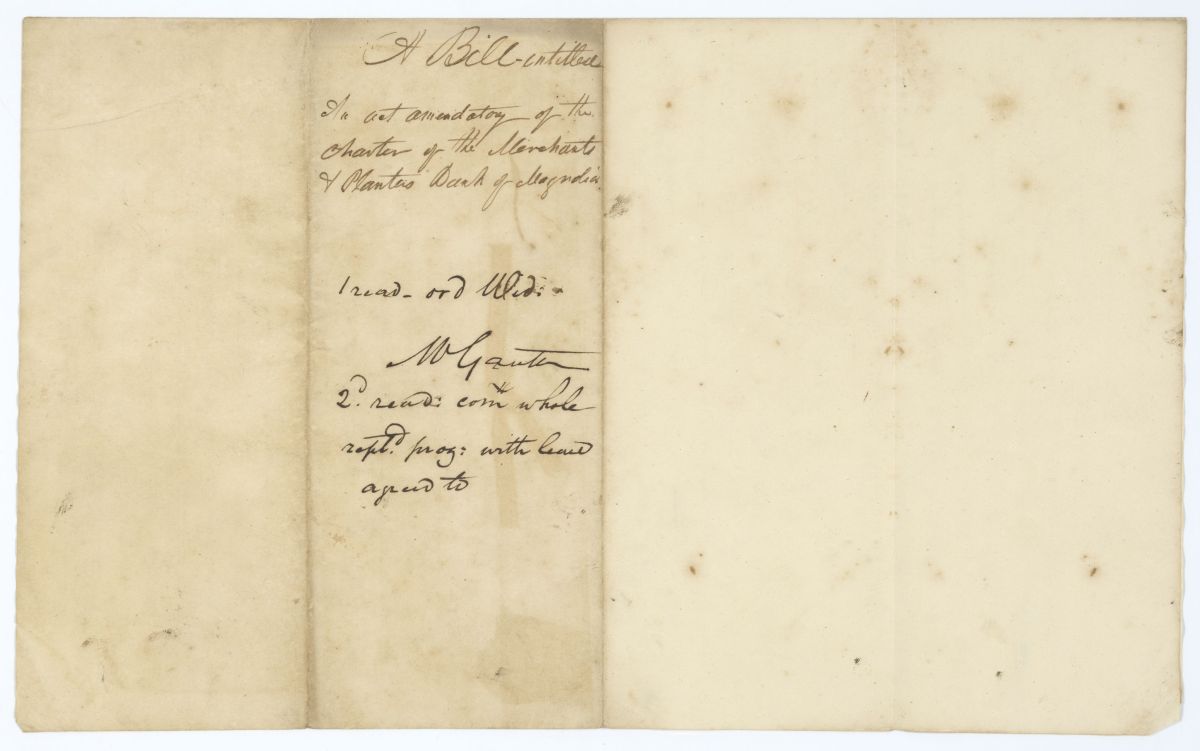 A Bill entitled
An act amendatory of the
charter of the Merchants
& Planters Bank of Magnolia.
1 read - ord Wed:
Mr Gautier
2d. read: comtt whole
rept.d prog: with leave
agreed to